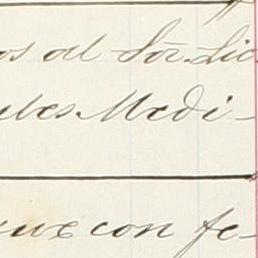 os al Sor. Lic
ules Medi-
con fe-